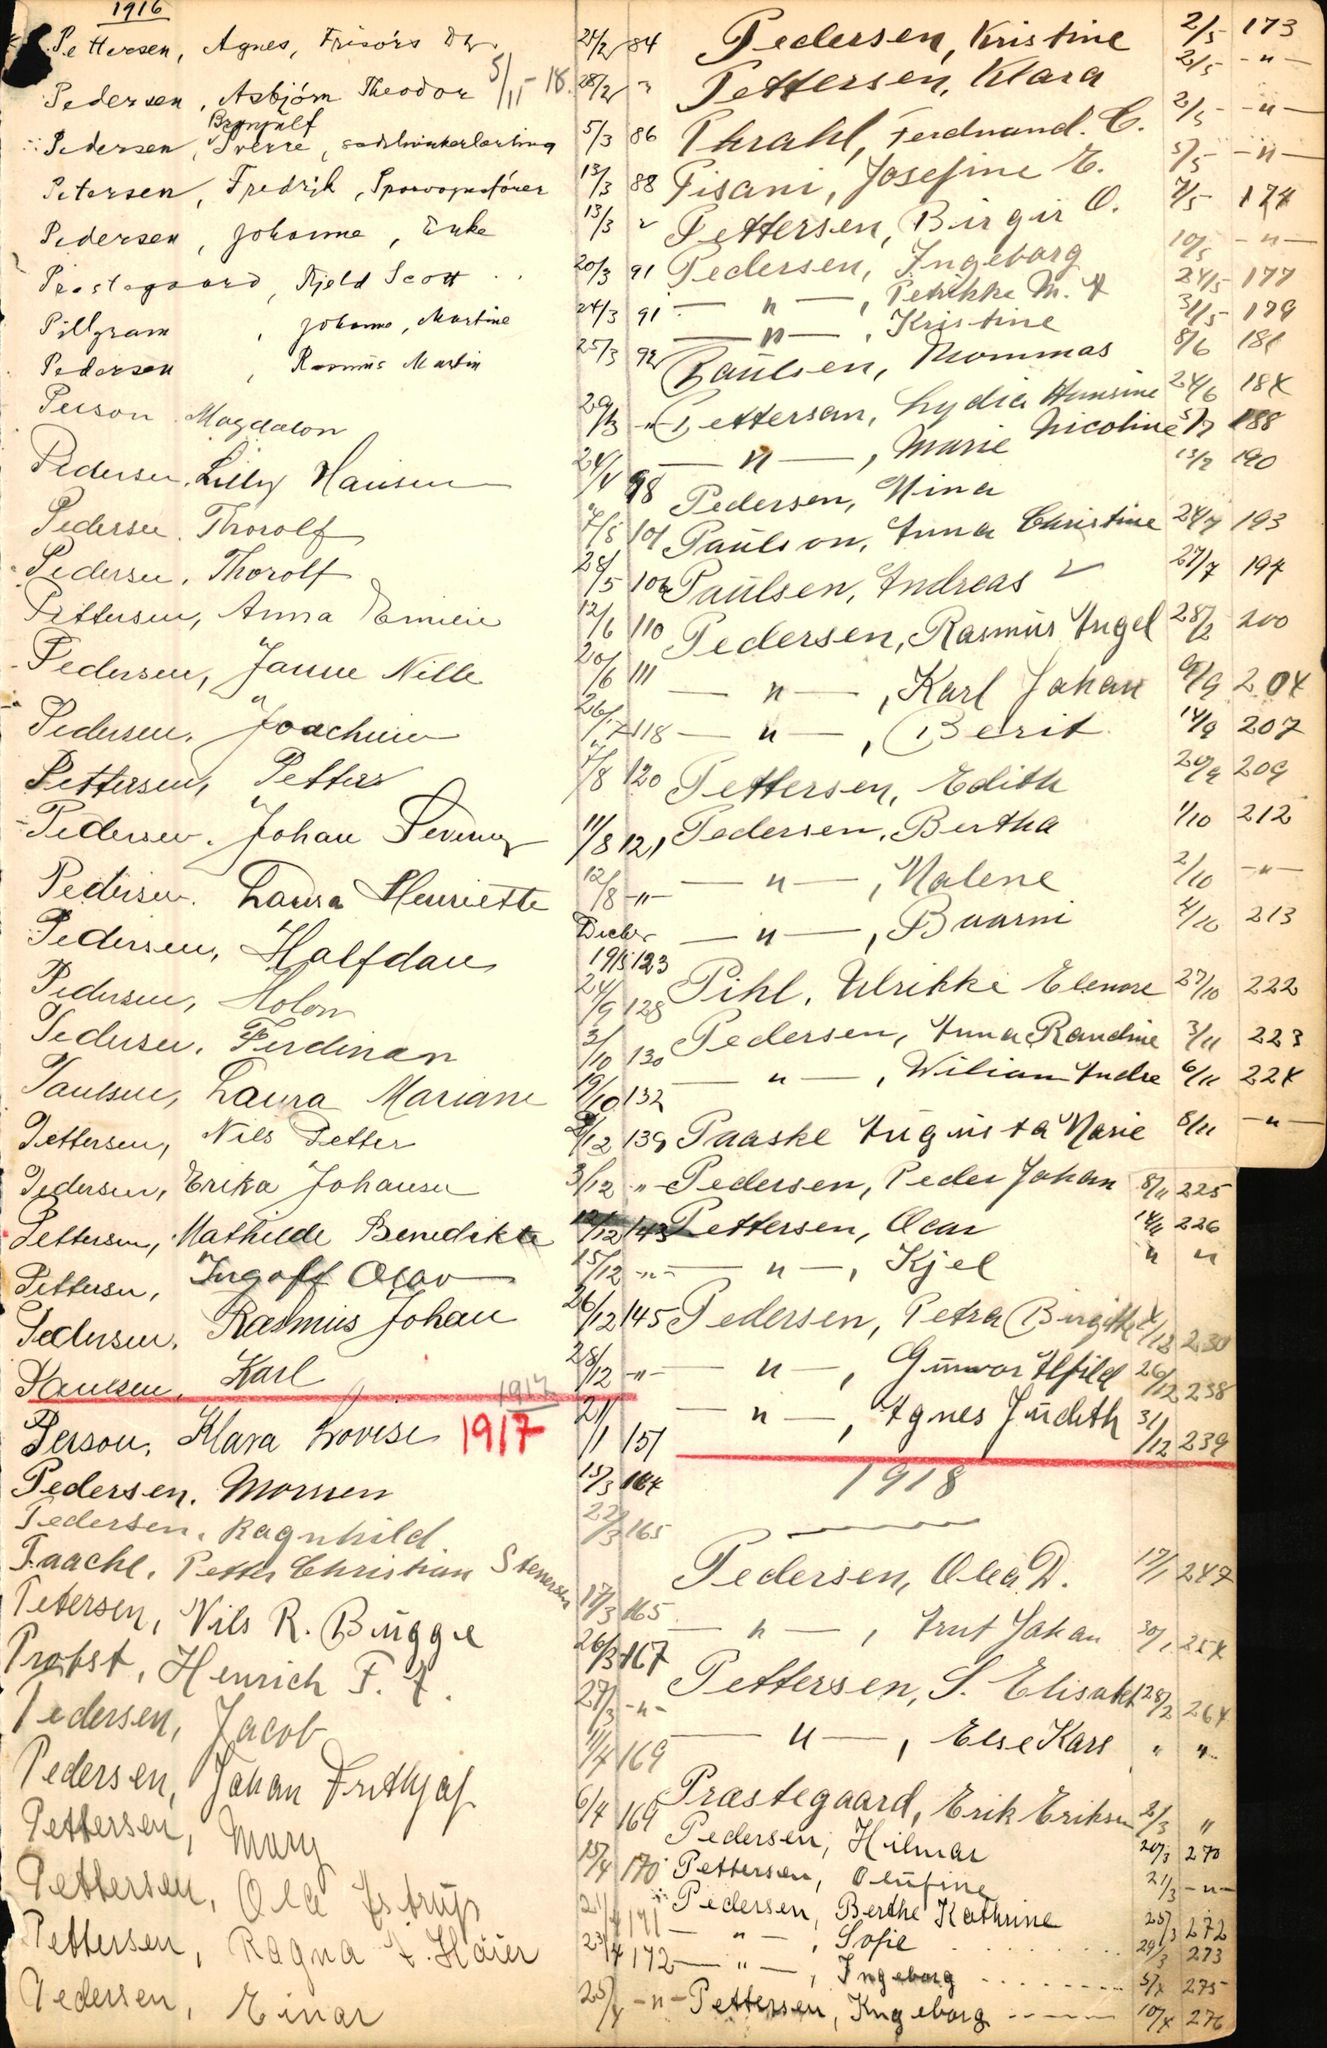 1916
Pettersen, Agnes, Frisörs D 24/2 84
Pedersen, Asbjörn Theodor 5/11-18. 28/2 "
Brynjulf
Pedersen, Sverre, 5/3 86
Petersen, Fredrik, Sporvognsfører 13/3 88
Pedersen, Johanne, Enke 13/3 "
Prestegaard, Kjeld Scott 20/3 91
Pillgram, Johanne, Martine 24/3 91
Pedersen, Rasmus Martin 25/3 92
Person Magdalon 29/3 "
Pedersen, Lilly Hansen 24/4 98
Pedersen, Thorolf 7/5 101
Pedersen, Thorolf 28/5 106
Pettersen, Anna Emilie 12/6 110
Pedersen, Janne Nille 20/6 111
Pedersen, Joachim 26/7 118
Pettersen, Petter 7/8 120
Pedersen, Johan Severin 11/8 121
Pedersen, Laura Henriette 12/8 -"-
Pedersen, Halfdan 19/8 123
Pedersen, Holon 24/9 128
Pedersen, Ferdinan 3/10 130
Paulsen, Laura Mariane 19/10 132
Pettersen, Nils Petter 2/12 139
Pedersen, Erika Johansen 3/12 -"-
Pettersen, Mathilde Benedikte 12/12 143
Pettersen, Ingolf Olav 15/12 -"-
Pedersen, Rasmus Johan 26/12 145
Paulsen, Karl 28/12 -"-
1917
Person, Klara Lovise 1917 2/1 151
Pedersen, Monsen 15/3 164
Pedersen, Ragnhild 22/3 165
Paache, Petter Christian Stenersen 17/3 165
Petersen, Nils R. Bugge 26/3 167
Probst, Henrich F. A. 27/3 -"-
Pedersen, Jacob 11/4 169
Pedersen, Johan Frithjof 6/4 169
Pettersen, Mary 15/4 170
Pettersen, Ole Astrup 21/4 171
Pettersen, Ragna A. Høier 23/4 172
Pedersen, Einar 25/4 -"-
Pedersen, Kristine 2/5 173
Pettersen, Klara 2/5 -"-
Phrahl, Ferdinand. C. 2/5 -"-
Pisani, Josefine E. 5/5 -"-
Pettersen, Birgir O. 7/5 174
Pedersen, Ingeborg 10/5 -"-
— " —, Petrikke M. A 24/5 177
— " —, Kristine 31/5 179
Paulsen, Mommas 8/6 181
Pettersen, Lydia Hansine 24/6 184
— " —, Marie Nicoline 5/7 188
Pedersen, Nina 13/7 190
Paulson, Anna Christine 24/7 193
Paulsen, Andreas 27/7 194
Pedersen, Rasmus Angel 28/2 200
— " —, Karl Johan 9/9 204
— " —, Berit 14/9 207
Pettersen, Edith 20/9 209
Pedersen, Bertha 1/10 212
— " —, Malene 2/10 -"-
— " —, Baarni 4/10 213
Pihl, Ulrikke Elenore 27/10 222
Pedersen, Anna Randine 3/11 223
— " —, Wiliam Andre 6/11 224
Paaske Augusta Marie 8/11 -"-
Pedersen, Peder Johan 8/11 225
Pettersen, Oscar 14/11 226
— " —, Kjel " "
Pedersen, Petra Birgitte 4/12 230
— " —, Gunvor Alfild 26/12 238
— " —, Agnes Judith 31/12 239
1918
Pedersen, Olea D. 17/1 247
— " —, Arnt Johan 30/1 254
Pettersen, S. Elisabet 28/2 264
— " —, Else Kars " "
Præstegaard, Erik Eriksen 2/3 "
Pedersen, Hilmar 20/3 270
Pettersen, Olufine 21/3 -"-
Pedersen, Berthe Kathrine 25/3 272
— " —, Sofie 29/3 273
— " —, Ingeborg 5/4 275
Pettersen, Ingeborg 10/4 276